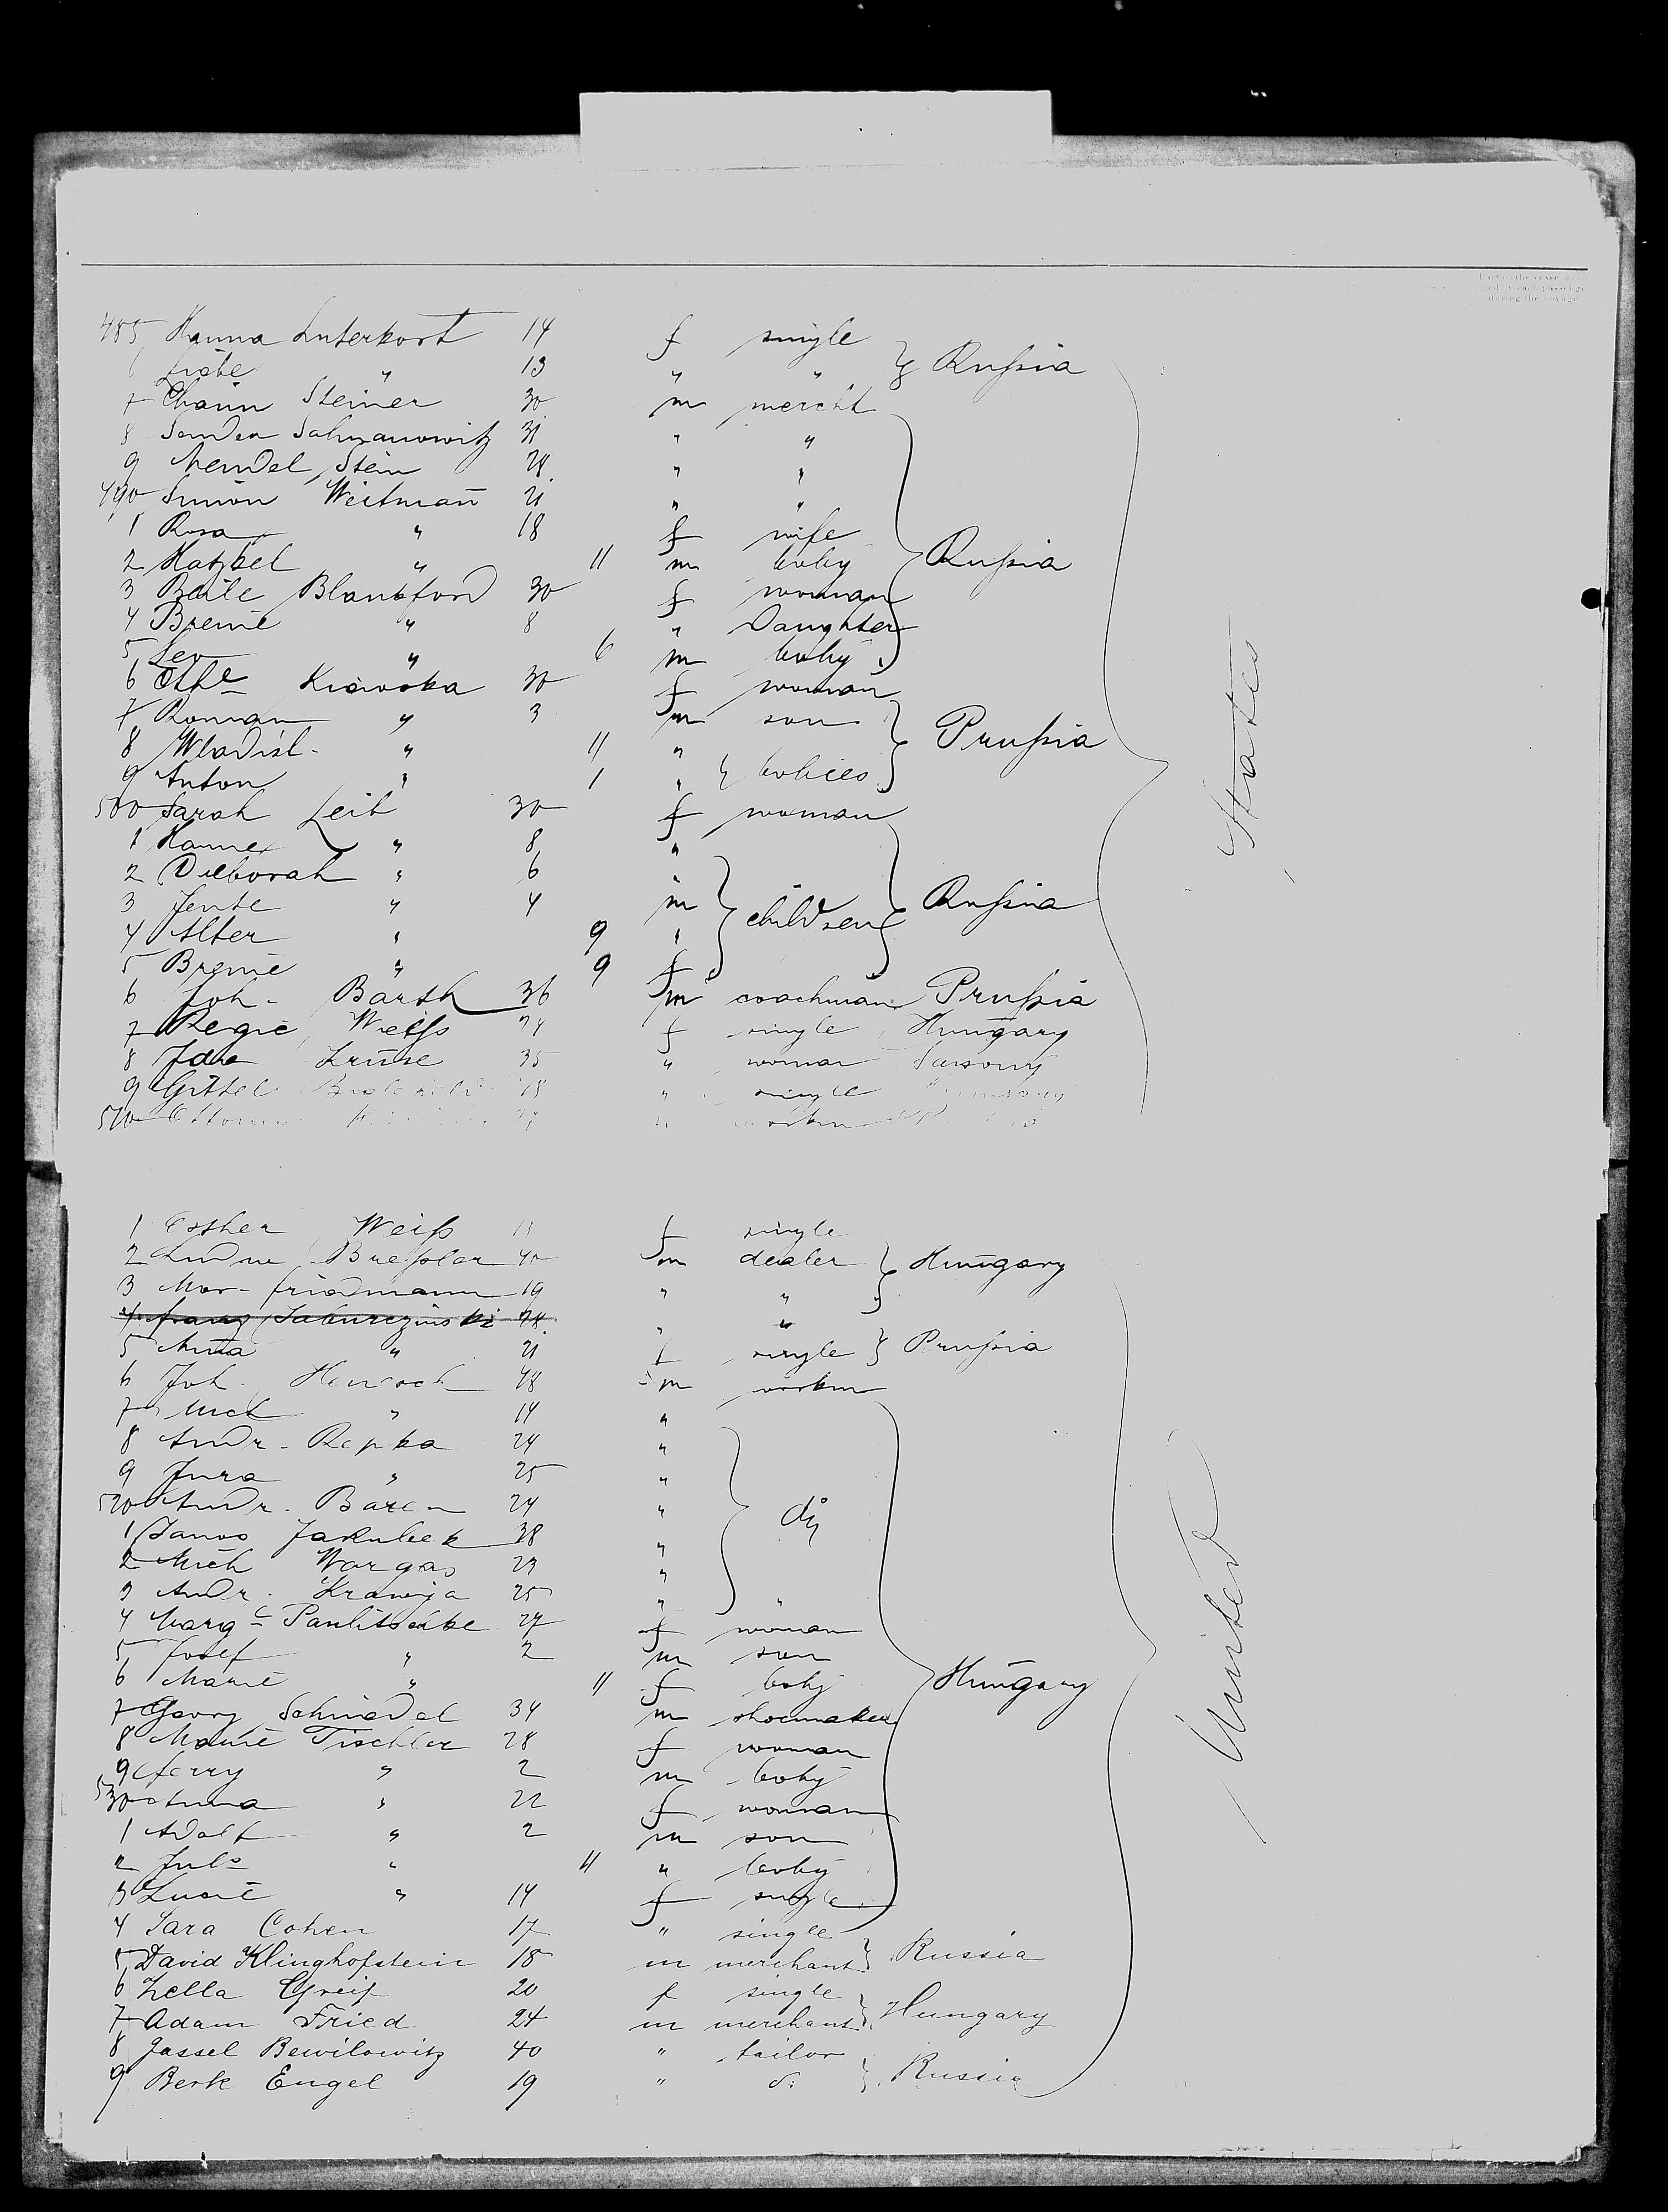 Part of the vessel
during the voyage
485 Hanna Luterkort 14 f single
6 Liebe " 13 " " } Rußia
7 Chaim Steiner 30 m mercht
8 Sender Salmanowitz 31 " "
9 Mendel Stein 28 " "
490 Simon Weitmañ 21 " "
1 Rosa " 18 f wife
2 Hatzkel " 11 m baby Rußia
3 Beile Blankford 30 f woman
4 Breine " 8 " Daughter
5 Lev " 6 m baby
6 Kiowska 30 f woman
7 Roman " 3 m son Prußia
8 Wladisl. " 11 "
9 Anton " 1 " } babies
500 Sarah Leib 30 f woman
1 Hanne " 8 "
2 Deborah " 6
3 Jente " 4 m children Rußia
4 Alter " 9 "
5 Breine " 9 f
6 Joh. Barth 36 m coachman Prußia
7 Regie Weiß 24 f single Hungary
8 Ida Kruse 35 " woman Saxony
9 Gittel 18 " single
510
1 Esther Weiß f single
2 Breßler 40 m dealer } Hungary
3 Mor. Friedmann 19 " "
4 Franz 28 " "
5 Anna " 21 f single } Prußia
6 Joh. 48 m workm
7 Mich " 14 "
8 Andr. Repka 24 "
9 Jura " 25 "
520 Andr. Baren 24 " do
1 Janos Jakubek 38 "
2 Mich Wargas 23 "
3 Andr. 25 " "
4 Marg. Paulitschke 27 f woman
5 Josef " 2 m son
6 Marie " 11 f baby Hungary
7 Georg Schmedel 34 m shoemaker
8 Marie Tischler 28 f woman
9 Ferry " 2 m baby
530 Anna " 22 f woman
1 Adolf " 2 m son
2 Juls " 11 " baby
3 " 14 f single
4 Sara Cohen 17 " single
5 David Klinghofstein 18 m merchant } Russia
6 Zella Greif 20 f single
7 Adam Fried 24 m merchant } Hungary
8 Jassel Bewilowitz 40 " tailor
9 Berk Engel 19 " do } Russia
United States